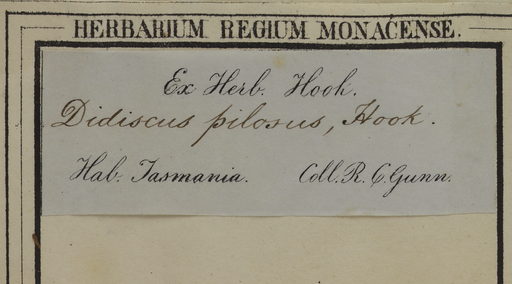 HERBARIUM REGIUM MONACENSE.
Ex Herb. Hook.
Didiscus pilosus, Hook.
Hab. Tasmania. Coll. R. C. Gunn.